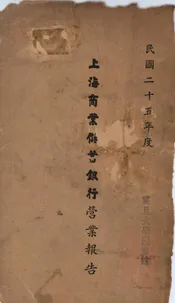 民國二十五年度
上海商業儲蓄銀行營業報告